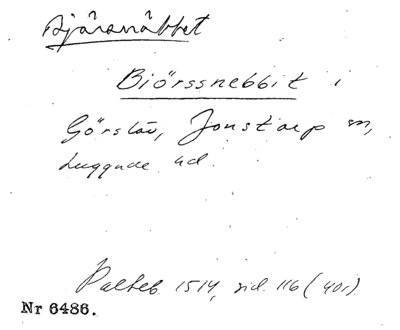 Bjäresnäbbet
Biörssnebbit i
Görslöv, Jonstorp sn,
Luggude hd.
Palteb. 1514, sid. 116 (401).
Nr 6486.